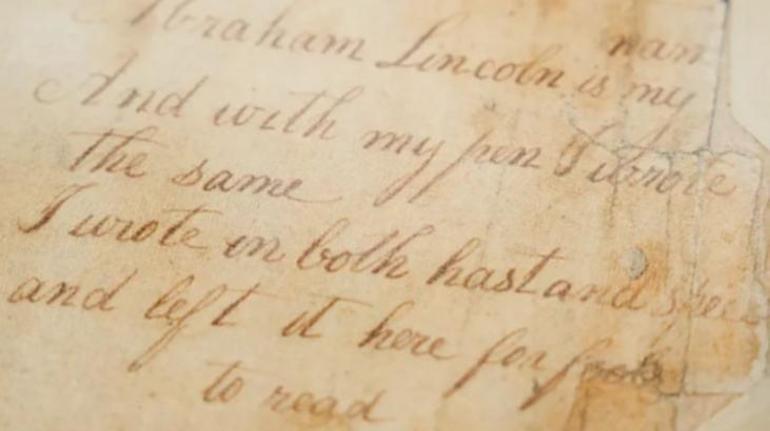 Abraham Lincoln is my nan
And with my pen I wrote
the same
I wrote in both hast and speed
and left it here for fools
to read